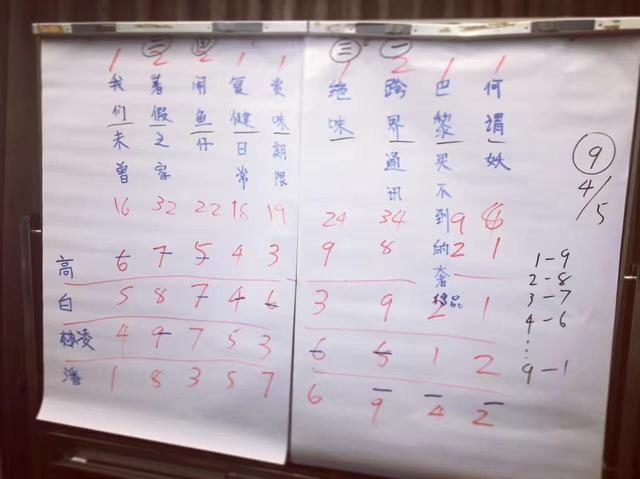 二 四 三 一
1 2 2 1 1 1 2 1 1
我们未曾
暑假之家
闹鱼仔
复健日常
赏味期限
绝味
跨界通讯
巴黎买不到的奢侈品
何谓妖
16 32 22 18 19 24 34 9 6
高 6 7 5 4 3 9 8 2 1
白 5 8 7 4 6 3 9 2 1
林凌 4 9 7 5 3 6 1 2
潘 1 8 3 5 7 6 9 4 2
9
4/5
1-9
2-8
3-7
4-6
⋮
9-1